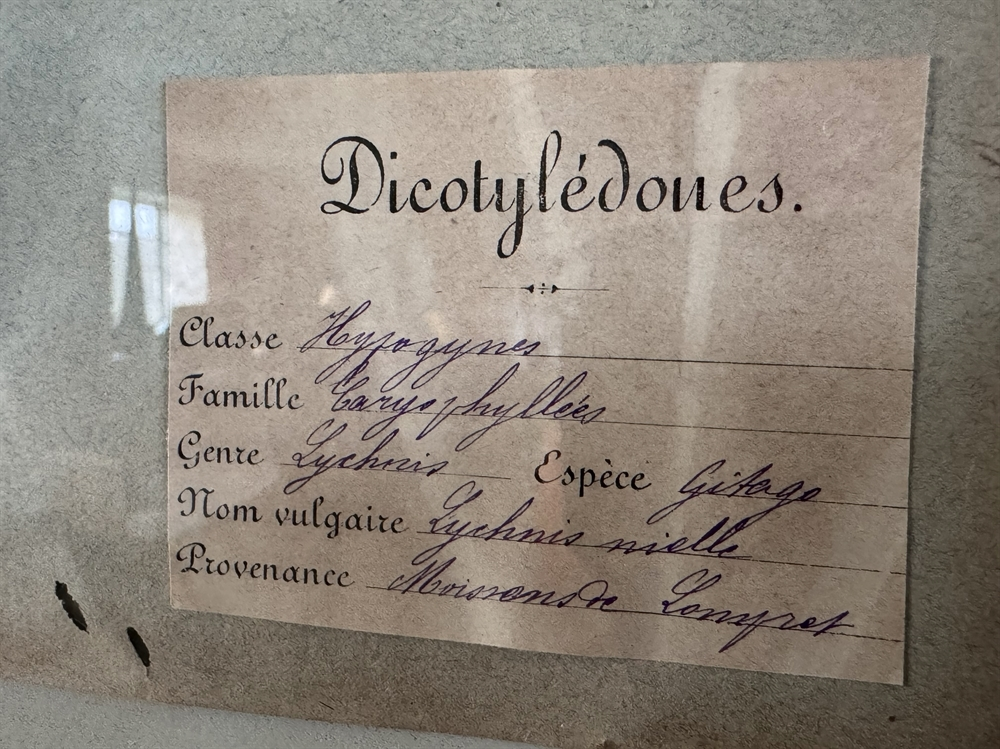 Dicotylédones.
Classe Hypogynes
Famille Caryophyllées
Genre Lychnis Espèce Gitago
Nom vulgaire Lychnis nielle
Provenance Moissons de